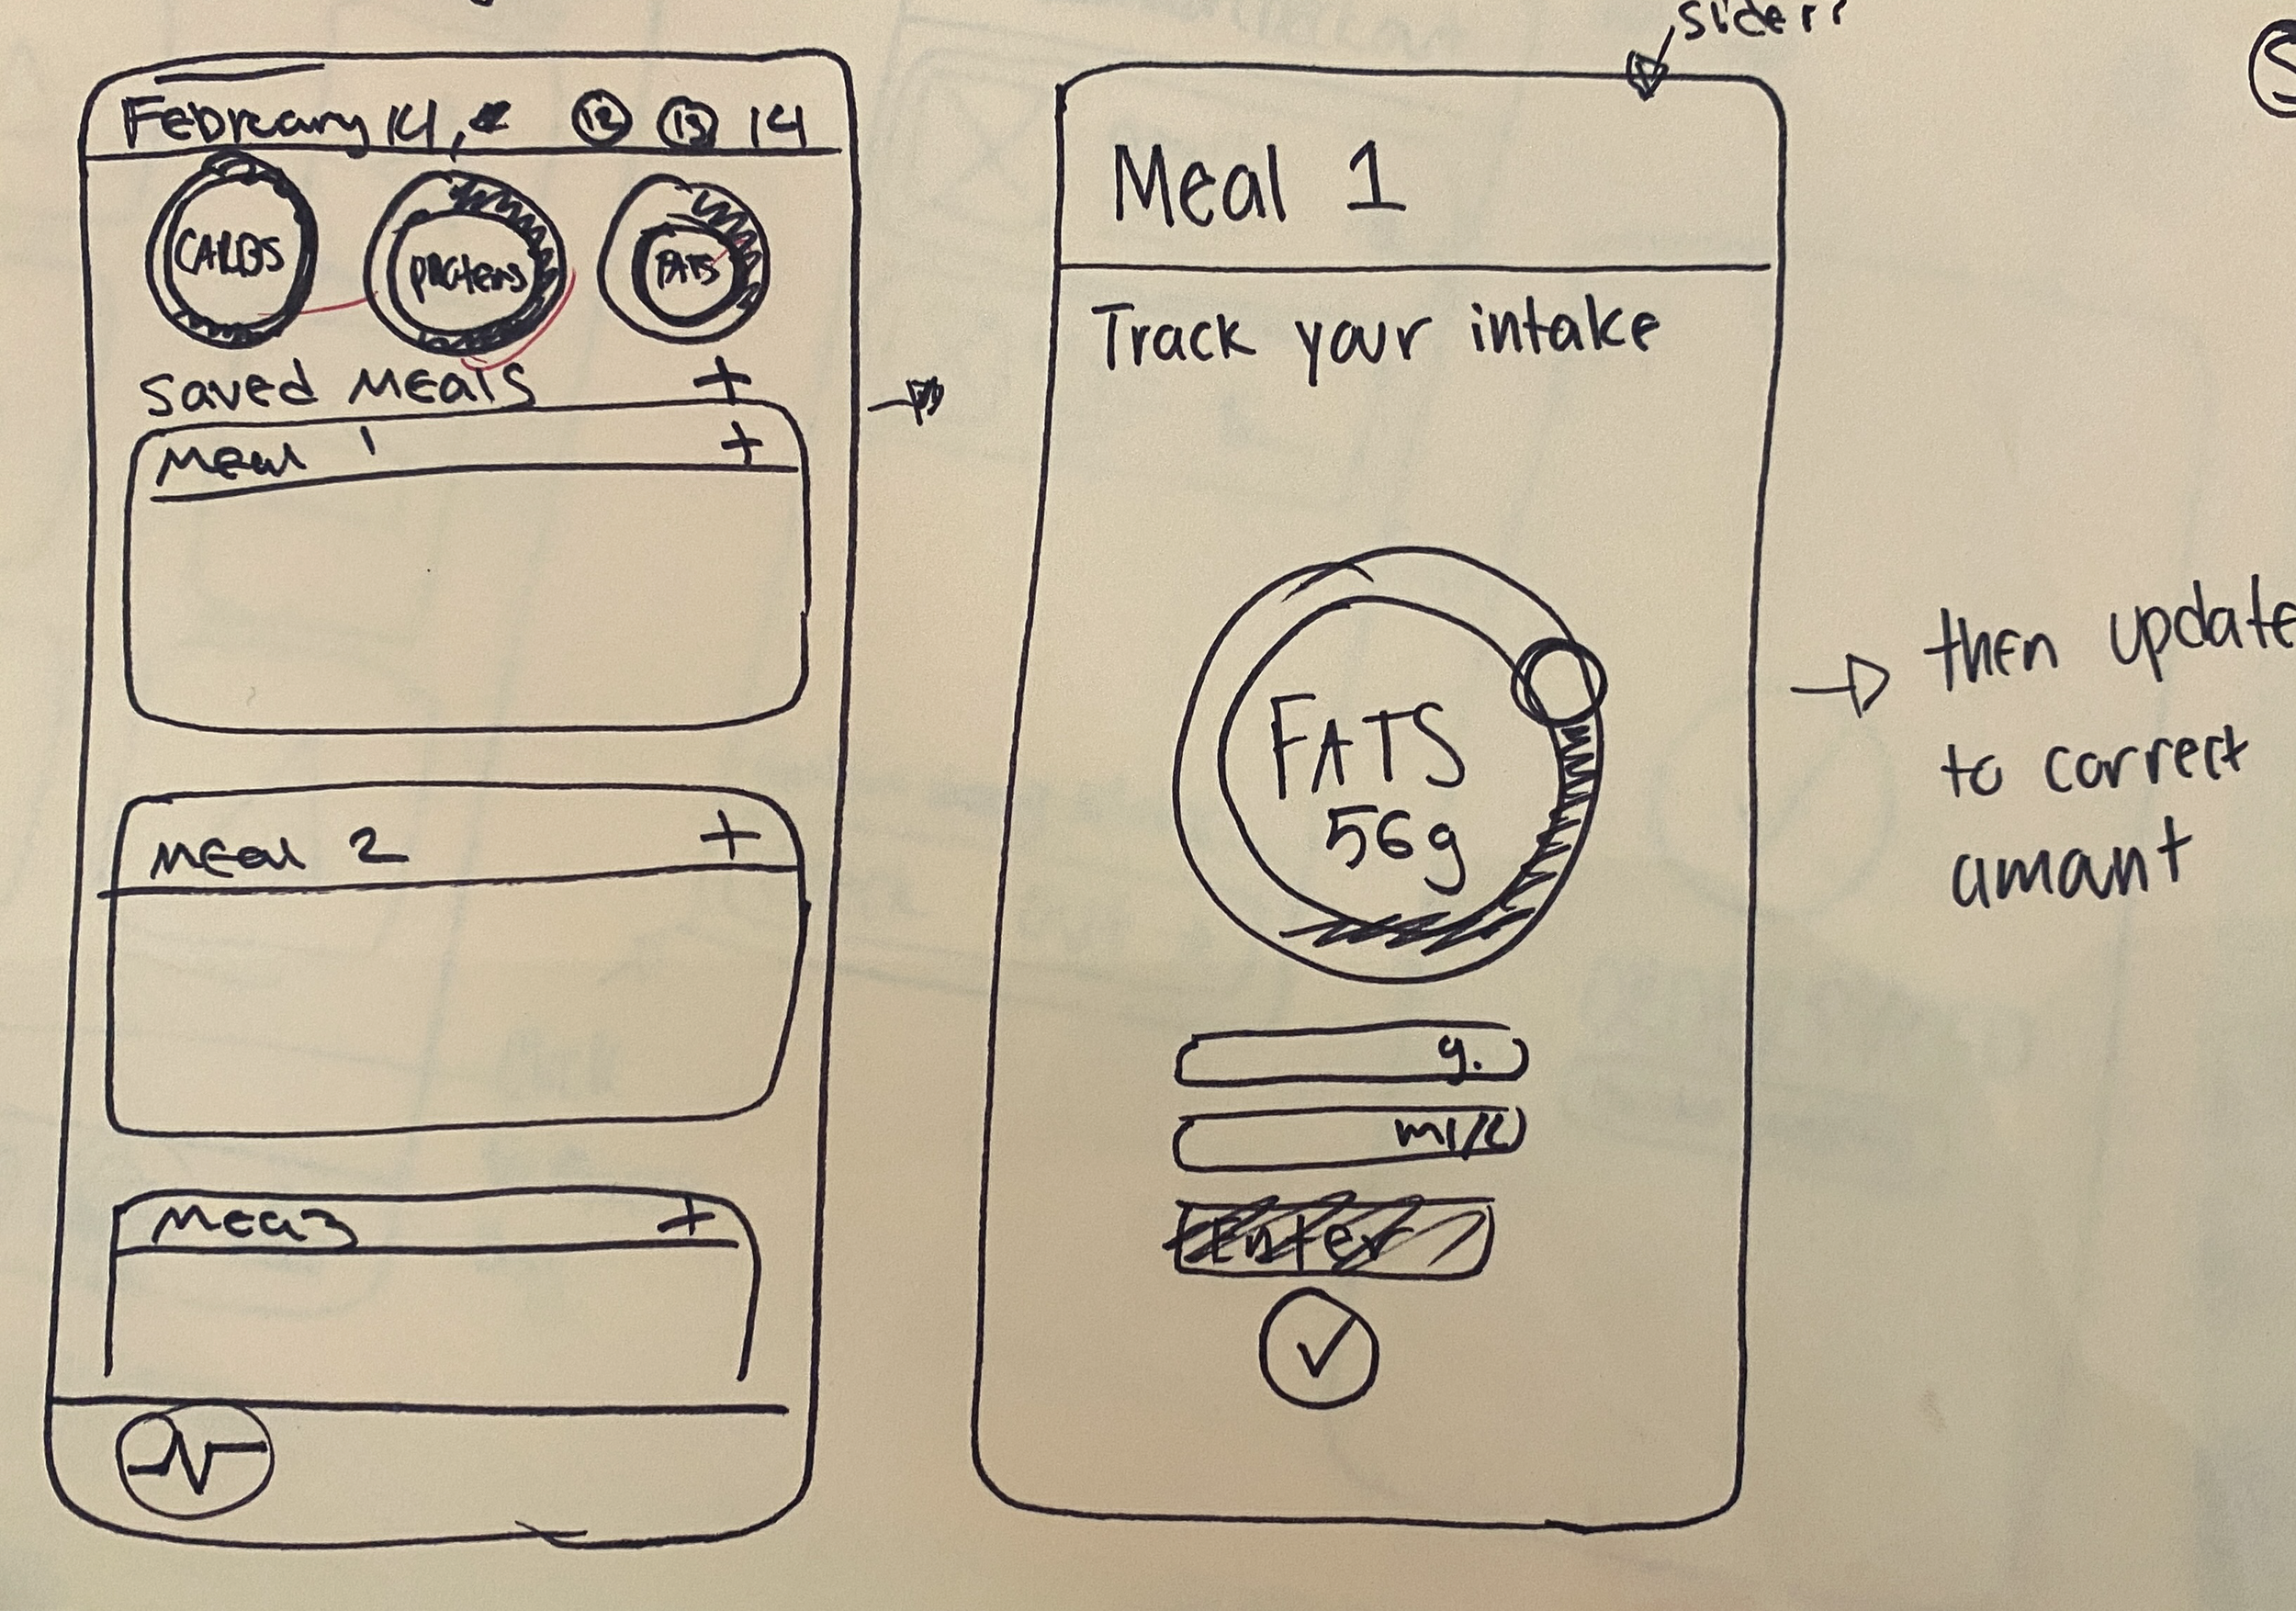 February 14, 12 13 14
CARBS
proteins
FATS
saved meals +
Meal 1 +
Meal 2 +
Mea3 +
slider?
Meal 1
Track your intake
FATS
56g
g.
ml/L
Enter
then update
to correct
amant